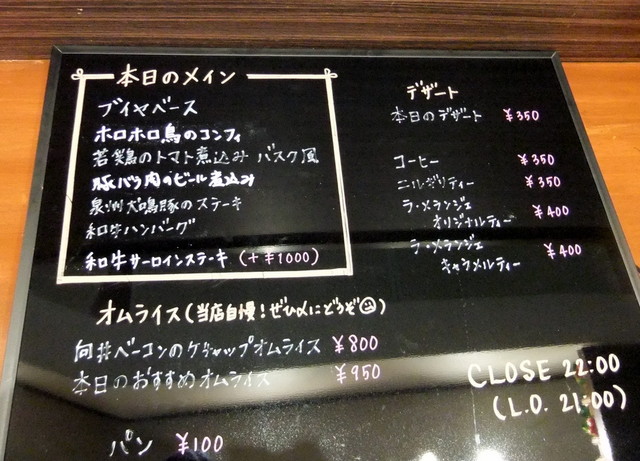 本日のメイン
ブイヤベース
ホロホロ鳥のコンフィ
若鶏のトマト煮込み バスク風
豚バラ肉のビール煮込み
泉州犬鳴豚のステーキ
和牛ハンバーグ
和牛サーロインステーキ (+¥1000)
オムライス(当店自慢!ぜひ〆にどうぞ☺)
向井ベーコンのケチャップオムライス ¥800
本日のおすすめオムライス ¥950
パン ¥100
デザート
本日のデザート ¥350
コーヒー ¥350
ニルギリティー ¥350
ラ・メランジェ
オリジナルティー ¥400
ラ・メランジェ
キャラメルティー ¥400
CLOSE 22:00
(L.O. 21:00)